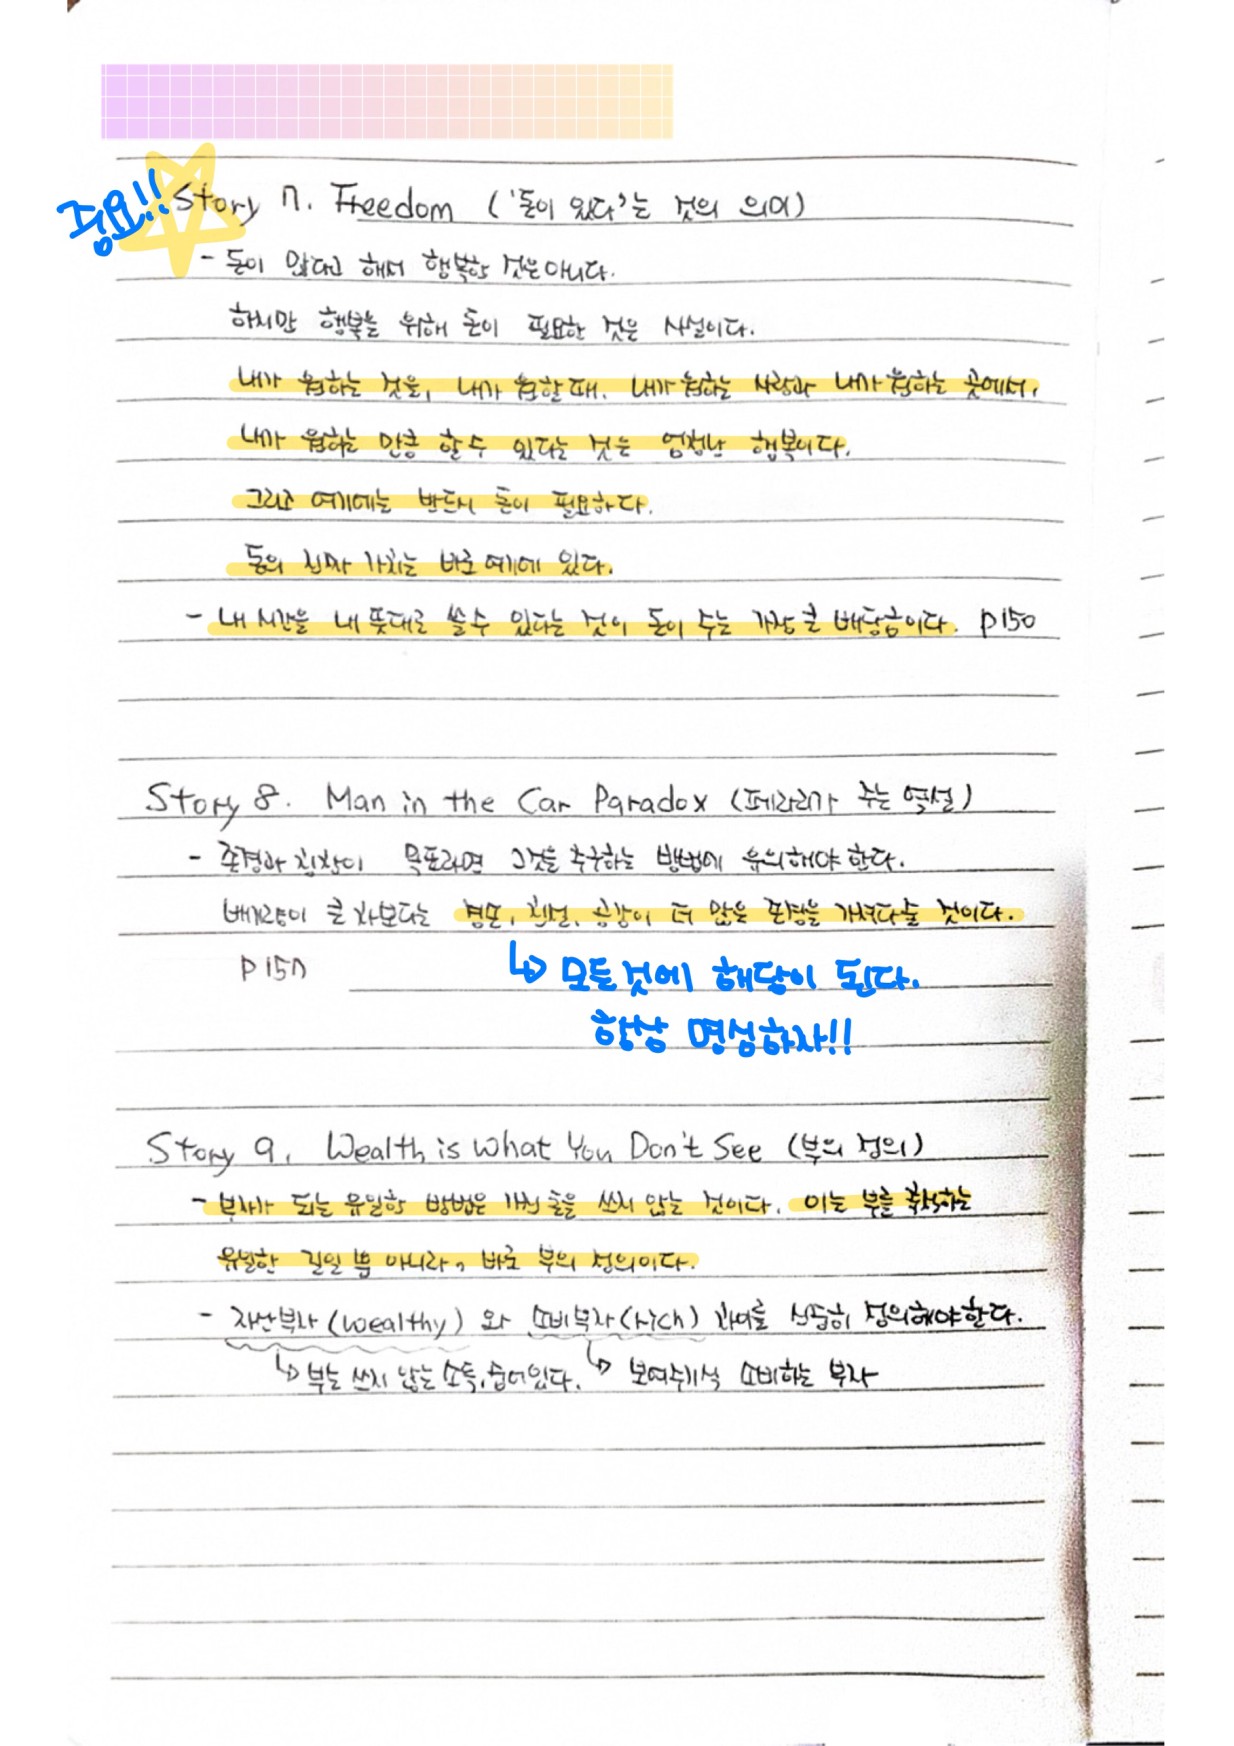 중요!! Story 7. Freedom ('돈이 있다'는 것의 의미)
- 돈이 많다고 해서 행복한 것은 아니다.
하지만 행복을 위해 돈이 필요한 것은 사실이다.
내가 원하는 것을, 내가 원할 때, 내가 원하는 사람과 내가 원하는 곳에서,
내가 원하는 만큼 할 수 있다는 것은 엄청난 행복이다.
그리고 여기에는 반드시 돈이 필요하다.
돈의 진짜 가치는 바로 여기에 있다.
- 내 시간을 내 뜻대로 쓸 수 있다는 것이 돈이 주는 가장 큰 배당금이다. P150
Story 8. Man in the Car Paradox (페라리가 주는 역설)
- 존경과 칭찬이 목표라면 그것을 추구하는 방법에 유의해야 한다.
배기량이 큰 차보다는 겸손, 친절, 공감이 더 많은 존경을 가져다 줄 것이다.
P157
↳ 모든 것에 해당이 된다.
항상 명심하자!!
Story 9. Wealth is What You Don't See (부의 정의)
- 부자가 되는 유일한 방법은 가진 돈을 쓰지 않는 것이다. 이는 부를 축적하는
유일한 길일 뿐 아니라, 바로 부의 정의이다.
- 자산부자 (wealthy) 와 소비부자 (rich) 차이를 신중히 정의해야 한다.
↳ 부는 쓰지 않는 소득, 숨어있다. ↳ 보여주기식 소비하는 부자